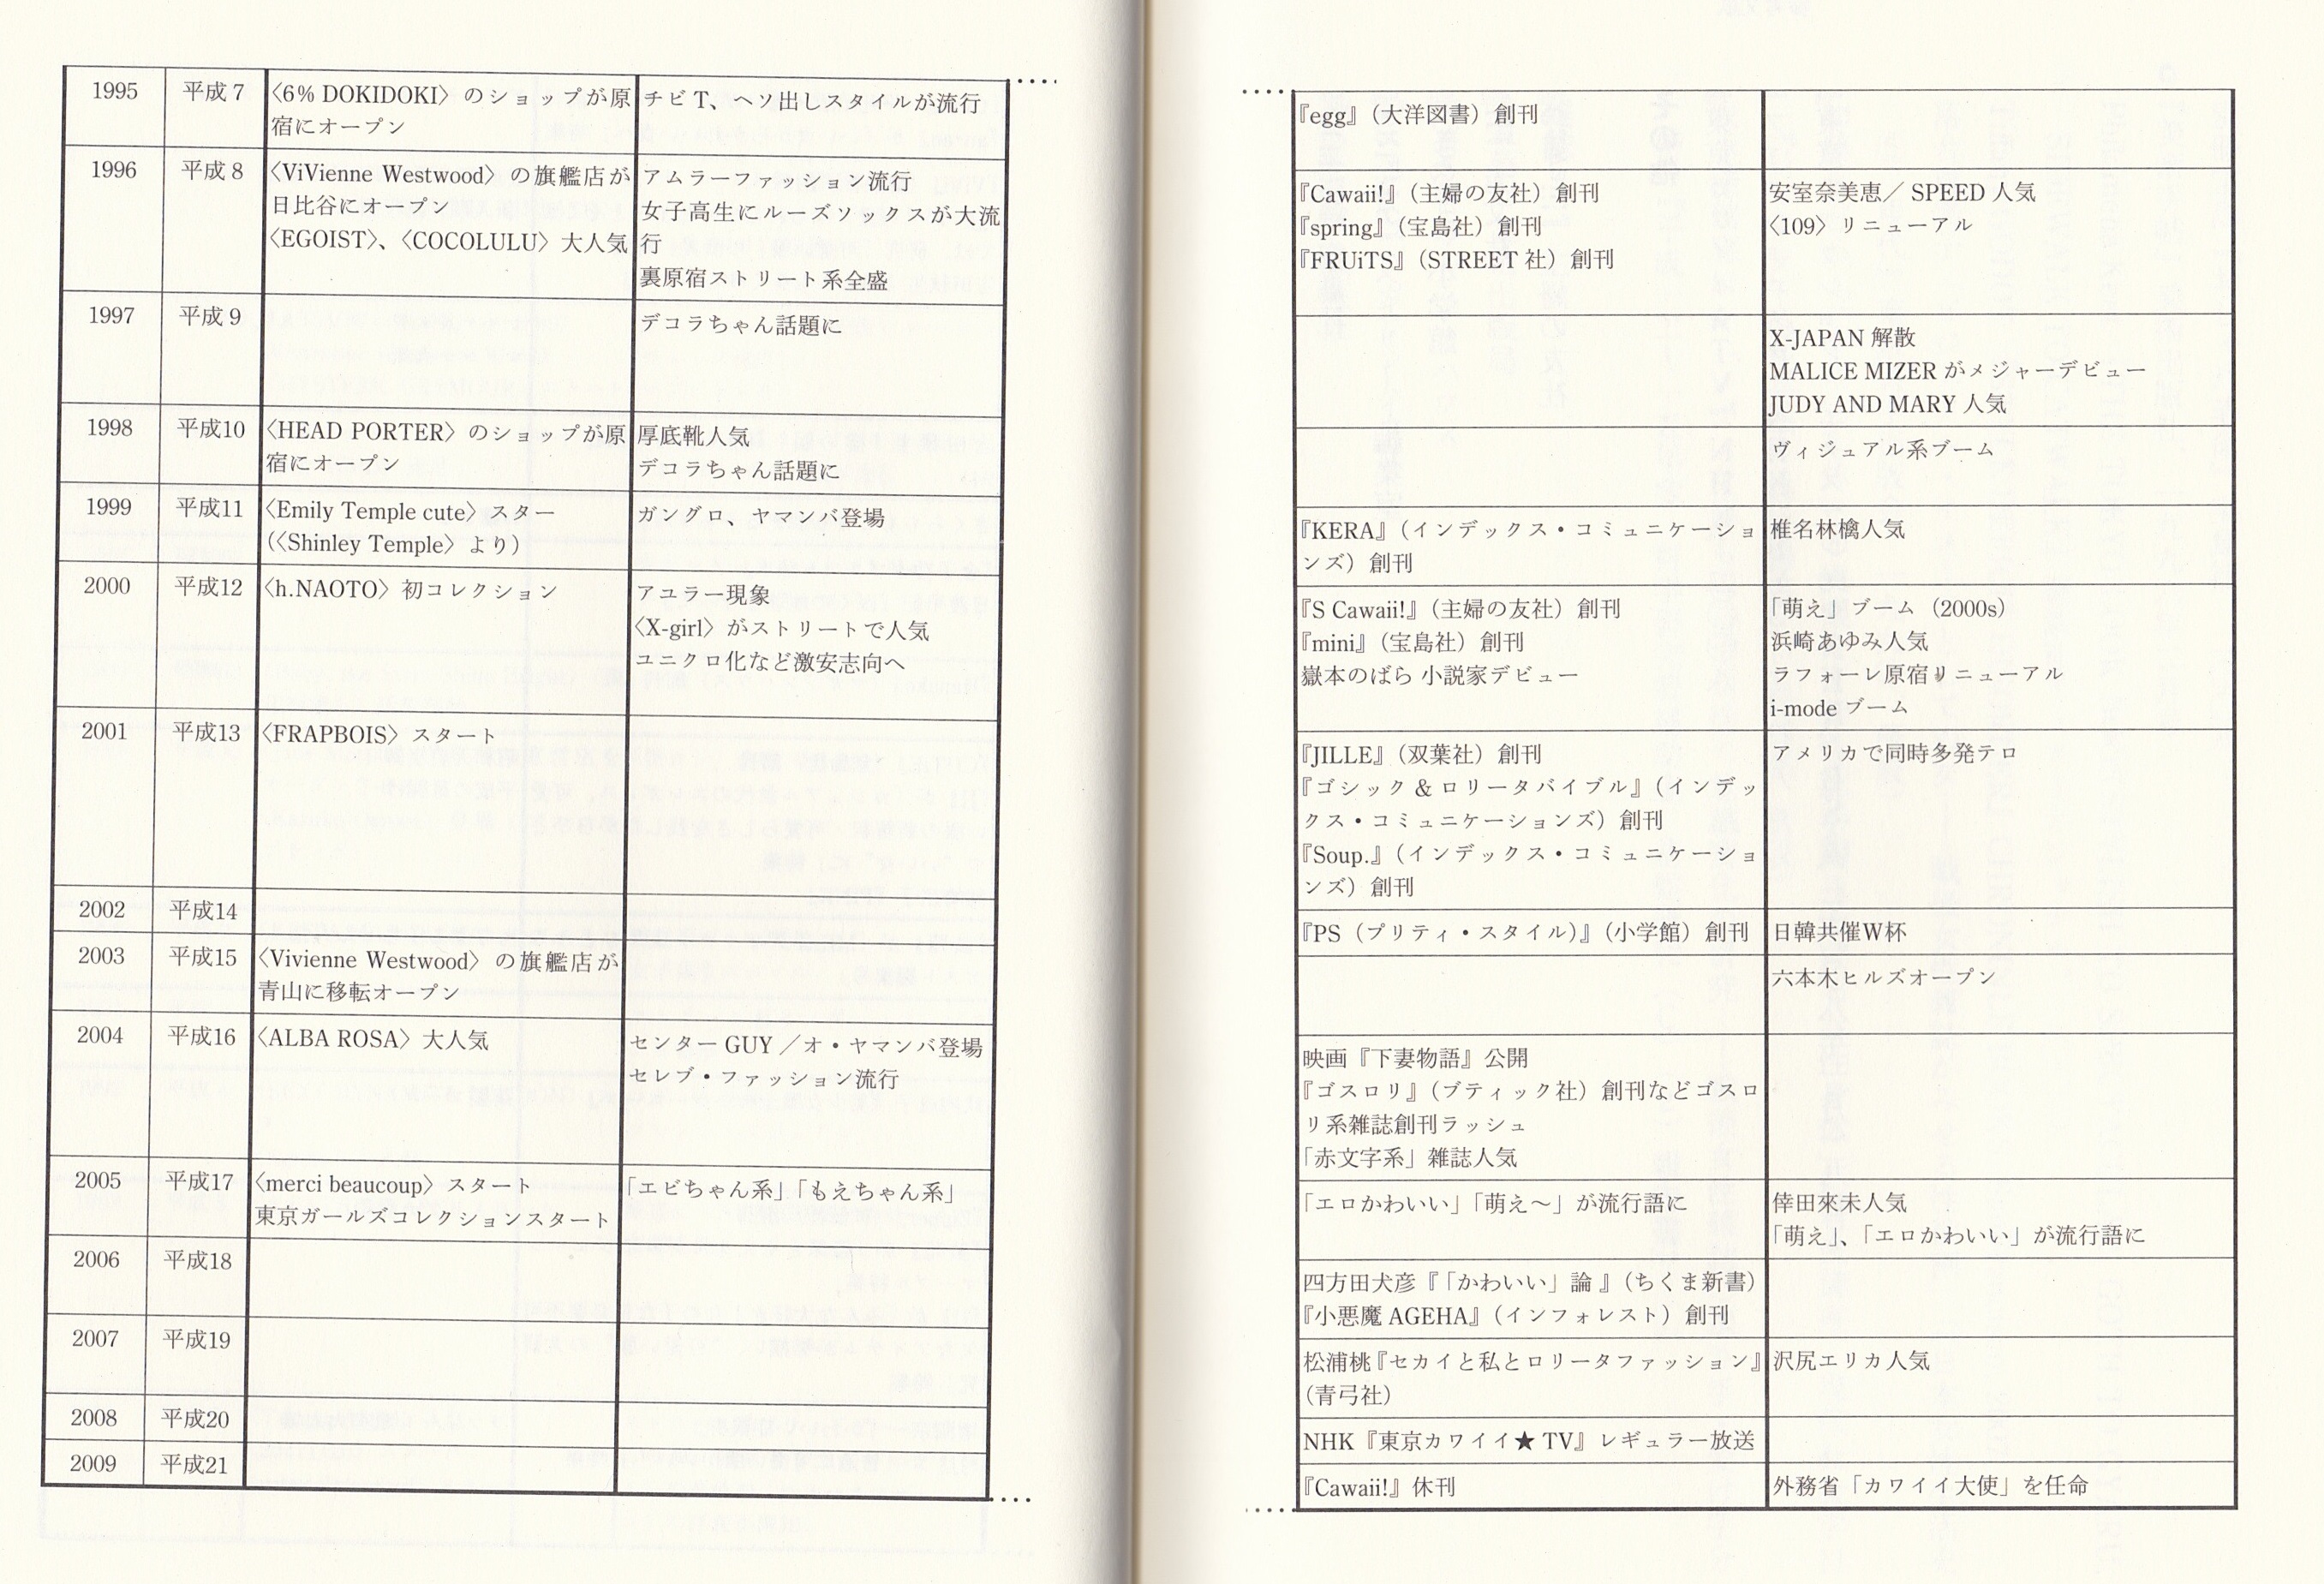 1995
平成7
〈6% DOKIDOKI〉のショップが原
宿にオープン
チビT、ヘソ出しスタイルが流行
1996
平成8
〈ViVienne Westwood〉の旗艦店が
日比谷にオープン
〈EGOIST〉、〈COCOLULU〉大人気
アムラーファッション流行
女子高生にルーズソックスが大流
行
裏原宿ストリート系全盛
1997
平成9
デコラちゃん話題に
1998
平成10
〈HEAD PORTER〉のショップが原
宿にオープン
厚底靴人気
デコラちゃん話題に
1999
平成11
〈Emily Temple cute〉スター
(〈Shinley Temple〉より)
ガングロ、ヤマンバ登場
2000
平成12
〈h.NAOTO〉初コレクション
アユラー現象
〈X-girl〉がストリートで人気
ユニクロ化など激安志向へ
2001
平成13
〈FRAPBOIS〉スタート
2002
平成14
2003
平成15
〈Vivienne Westwood〉の旗艦店が
青山に移転オープン
2004
平成16
〈ALBA ROSA〉大人気
センターGUY／オ・ヤマンバ登場
セレブ・ファッション流行
2005
平成17
〈merci beaucoup〉スタート
東京ガールズコレクションスタート
「エビちゃん系」「もえちゃん系」
2006
平成18
2007
平成19
2008
平成20
2009
平成21
『egg』（大洋図書）創刊
『Cawaii!』（主婦の友社）創刊
『spring』（宝島社）創刊
『FRUiTS』（STREET社）創刊
安室奈美恵／SPEED人気
〈109〉リニューアル
X-JAPAN解散
MALICE MIZERがメジャーデビュー
JUDY AND MARY人気
ヴィジュアル系ブーム
『KERA』（インデックス・コミュニケーショ
ンズ）創刊
椎名林檎人気
『S Cawaii!』（主婦の友社）創刊
『mini』（宝島社）創刊
嶽本のばら 小説家デビュー
「萌え」ブーム（2000s）
浜崎あゆみ人気
ラフォーレ原宿リニューアル
i-modeブーム
『JILLE』（双葉社）創刊
『ゴシック&ロリータバイブル』（インデッ
クス・コミュニケーションズ）創刊
『Soup.』（インデックス・コミュニケーショ
ンズ）創刊
アメリカで同時多発テロ
『PS（プリティ・スタイル)』（小学館）創刊
日韓共催W杯
六本木ヒルズオープン
映画『下妻物語』公開
『ゴスロリ』（ブティック社）創刊などゴスロ
リ系雑誌創刊ラッシュ
「赤文字系」雑誌人気
「エロかわいい」「萌え〜」が流行語に
倖田來未人気
「萌え」、「エロかわいい」が流行語に
四方田犬彦『「かわいい」論 』（ちくま新書）
『小悪魔AGEHA』（インフォレスト）創刊
松浦桃『セカイと私とロリータファッション』
（青弓社）
沢尻エリカ人気
NHK『東京カワイイ★TV』レギュラー放送
『Cawaii!』休刊
外務省「カワイイ大使」を任命